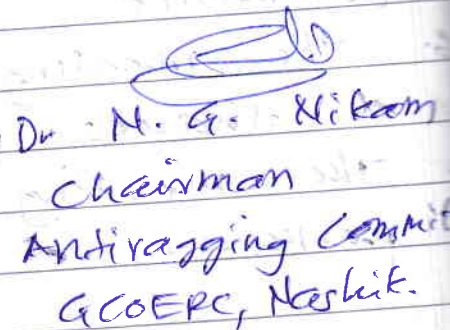 Dr. N. G. Nikam
Chairman
Antiragging Commit
GCOERC, Nashik.